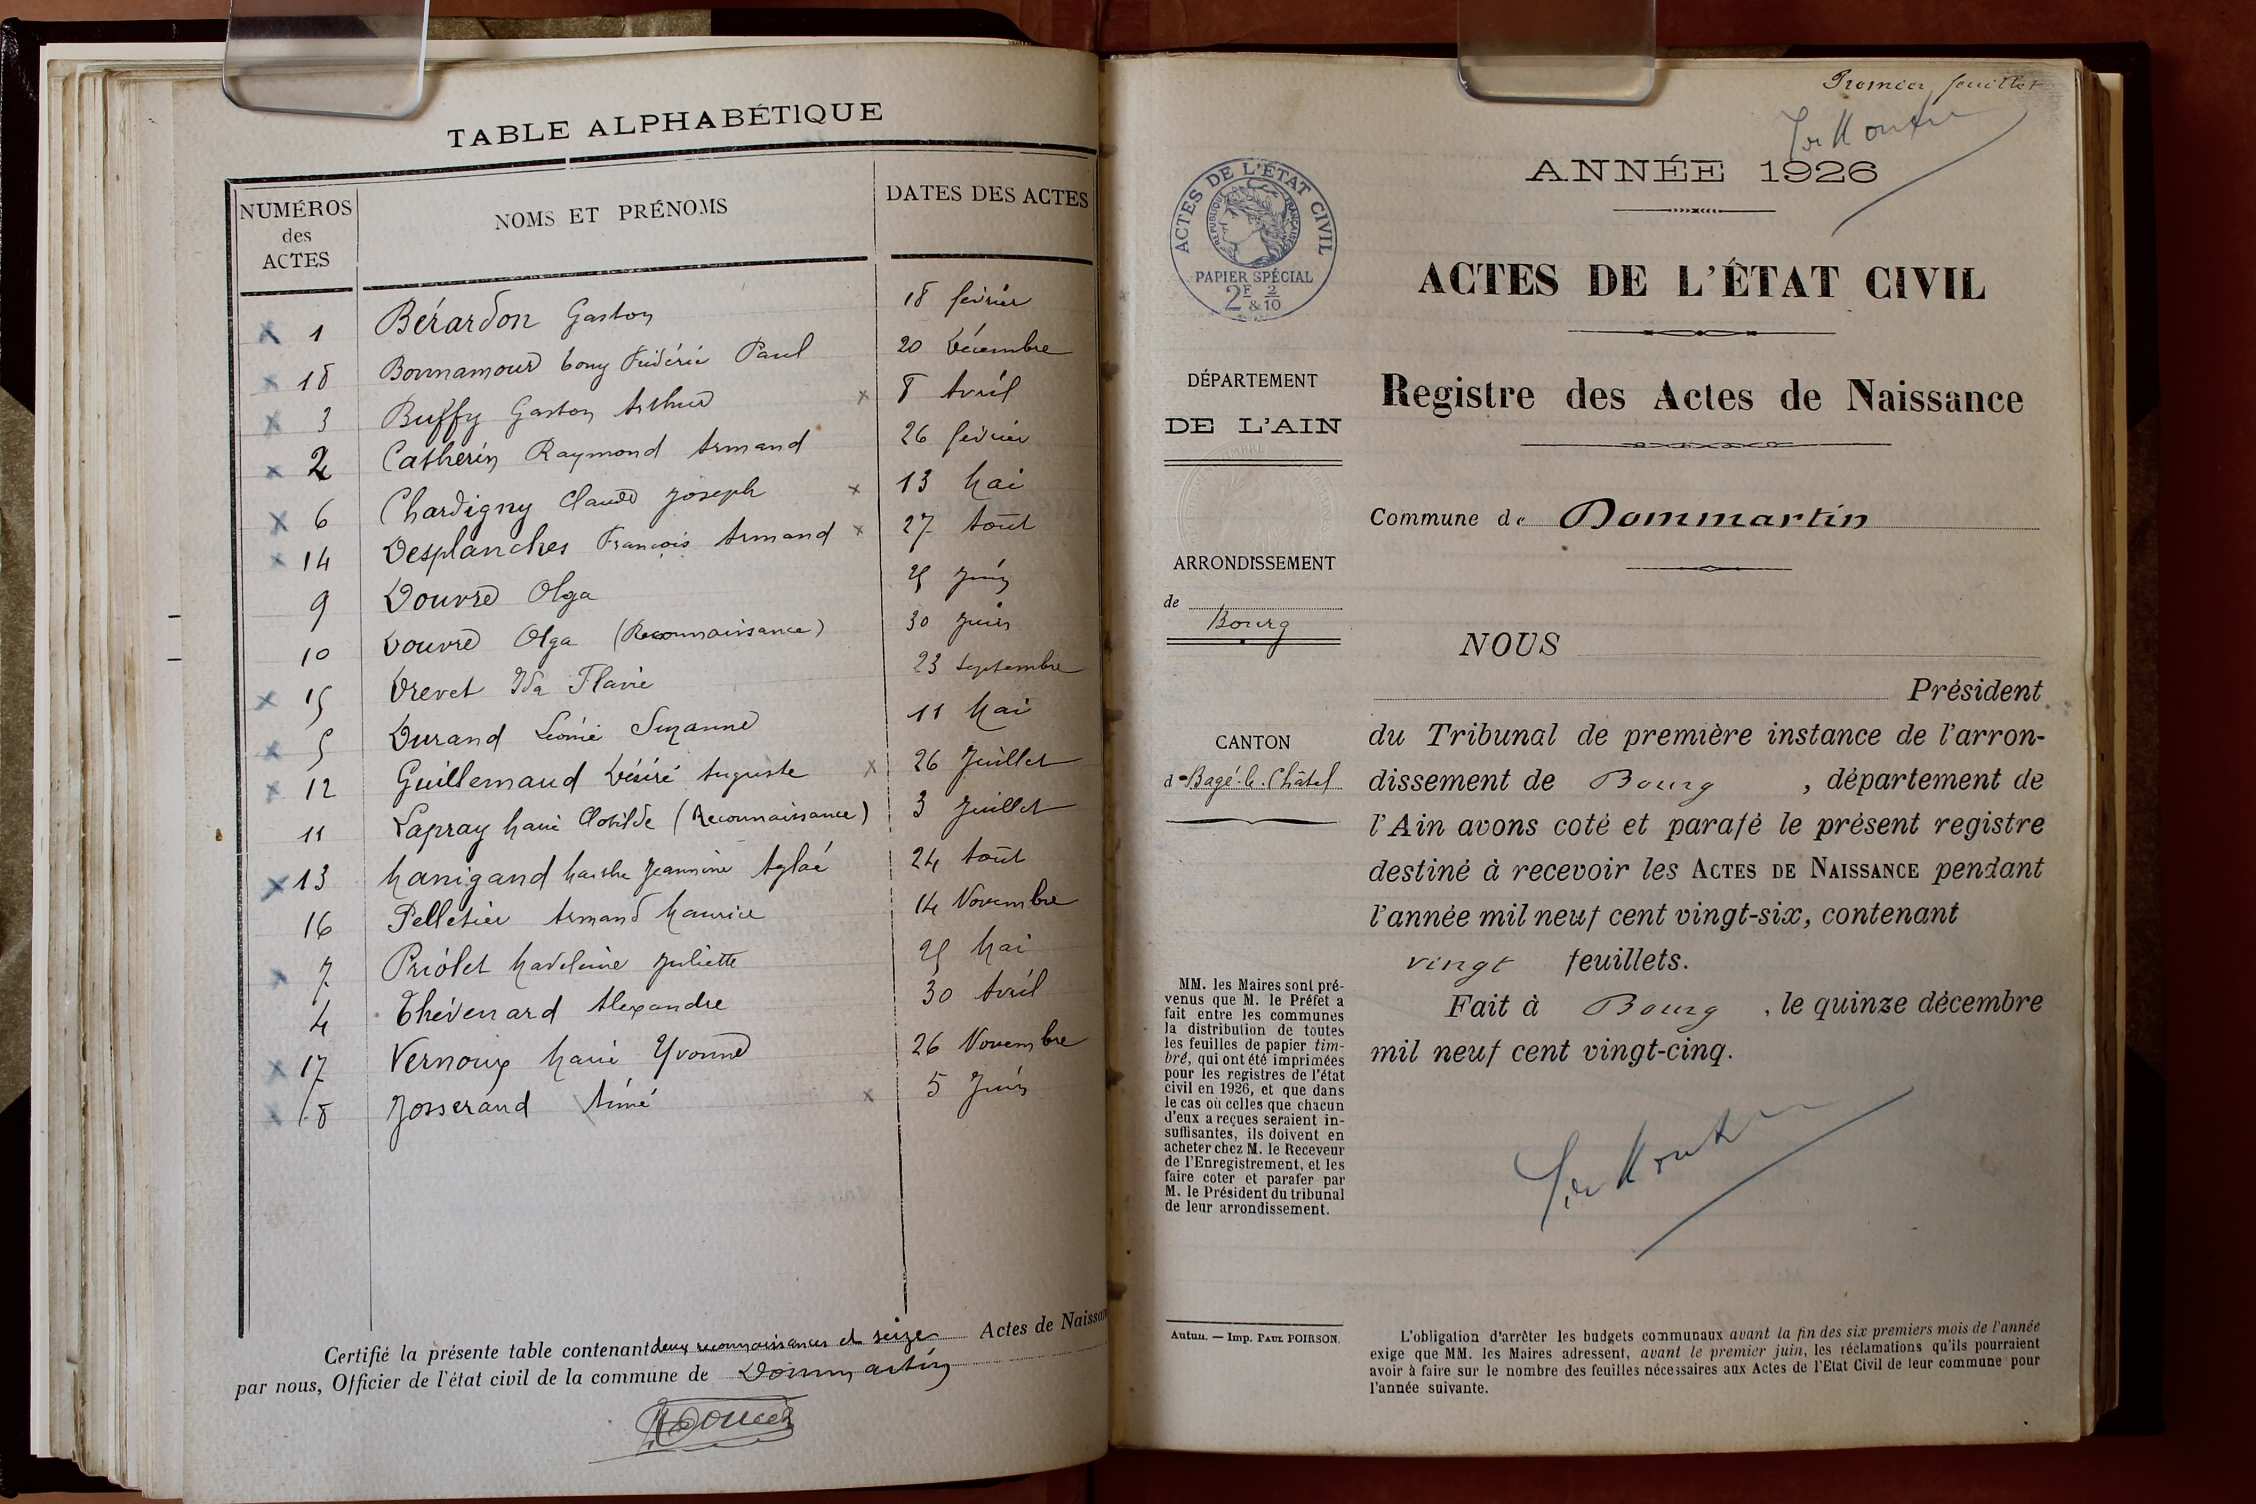 TABLE ALPHABÉTIQUE
NUMÉROS des ACTES NOMS ET PRÉNOMS DATES DES ACTES
1 Bérardon Gaston 18 février
18 Bonnamour Tony Frédéric Paul 20 Décembre
3 Buffy Gaston Arthur 8 Avril
2 Catherin Raymond Armand 26 février
6 Chardigny Claude Joseph 13 Mai
14 Desplanches François Armand 27 Août
9 Douvre Olga 25 Juin
10 Douvre Olga (Reconnaissance) 30 Juin
15 Drevet Ida Flavie 23 Septembre
5 Durand Léonie Suzanne 11 Mai
12 Guillemaud Désiré Auguste 26 Juillet
11 Lapray Marie Clotilde (Reconnaissance) 3 Juillet
13 Manigand Marthe Jeannine Aglaé 24 Août
16 Pelletier Armand Maurice 14 Novembre
7 Priolet Madeleine Juliette 25 Mai
4 Thévenard Alexandre 30 Avril
17 Vernoux Marie Yvonne 26 Novembre
8 Josserand Aimé 5 Juin
Certifié la présente table contenant deux reconnaissances et seize Actes de Naissan
par nous, Officier de l'état civil de la commune de Dommartin
Premier feuillet
ANNÉE 1926
ACTES DE L'ÉTAT CIVIL
RÉPUBLIQUE FRANÇAISE
PAPIER SPÉCIAL
2F & 2/10
ACTES DE L'ÉTAT CIVIL
DÉPARTEMENT
DE L'AIN
Registre des Actes de Naissance
Commune de Dommartin
ARRONDISSEMENT
de
Bourg
CANTON
de Bagé-le-Châtel
NOUS
Président
du Tribunal de première instance de l'arron-
dissement de Bourg, département de
l'Ain avons coté et parafé le présent registre
destiné à recevoir les ACTES DE NAISSANCE pendant
l'année mil neuf cent vingt-six, contenant
vingt feuillets.
Fait à Bourg, le quinze décembre
mil neuf cent vingt-cinq.
MM. les Maires sont pré-
venus que M. le Préfet a
fait entre les communes
la distribution de toutes
les feuilles de papier tim-
bré, qui ont été imprimées
pour les registres de l'état
civil en 1926, et que dans
le cas où celles que chacun
d'eux a reçues seraient in-
suffisantes, ils doivent en
acheter chez M. le Receveur
de l'Enregistrement, et les
faire coter et parafer par
M. le Président du tribunal
de leur arrondissement.
Autun. — Imp. PAUL POIRSON.
L'obligation d'arrêter les budgets communaux avant la fin des six premiers mois de l'année
exige que MM. les Maires adressent, avant le premier juin, les réclamations qu'ils pourraient
avoir à faire sur le nombre des feuilles nécessaires aux Actes de l'Etat Civil de leur commune pour
l'année suivante.